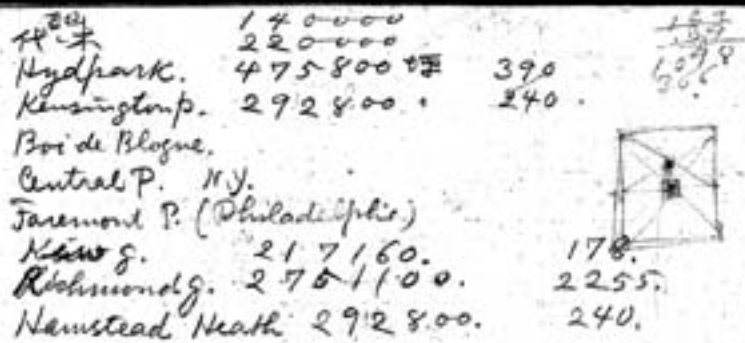 140000
代々木 220000
Hydpark. 475800坪 390
Kensingtonp. 292800. 240.
Boi de Blogne.
Central P. N.Y.
Faremont P. (Philadelphie)
Kew g. 217160. 178.
Richmond g. 2751100. 2255.
Hamstead Heath 292800. 240.